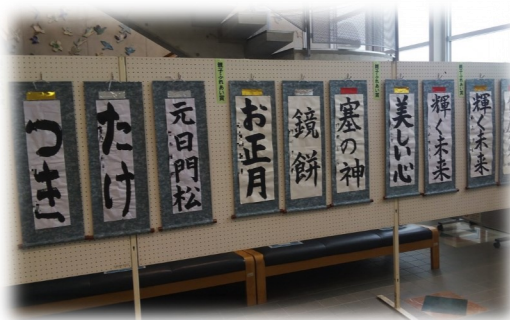 つき
たけ
元日門松
お正月
鏡餅
塞の神
美しい心
輝く未来
輝く未来